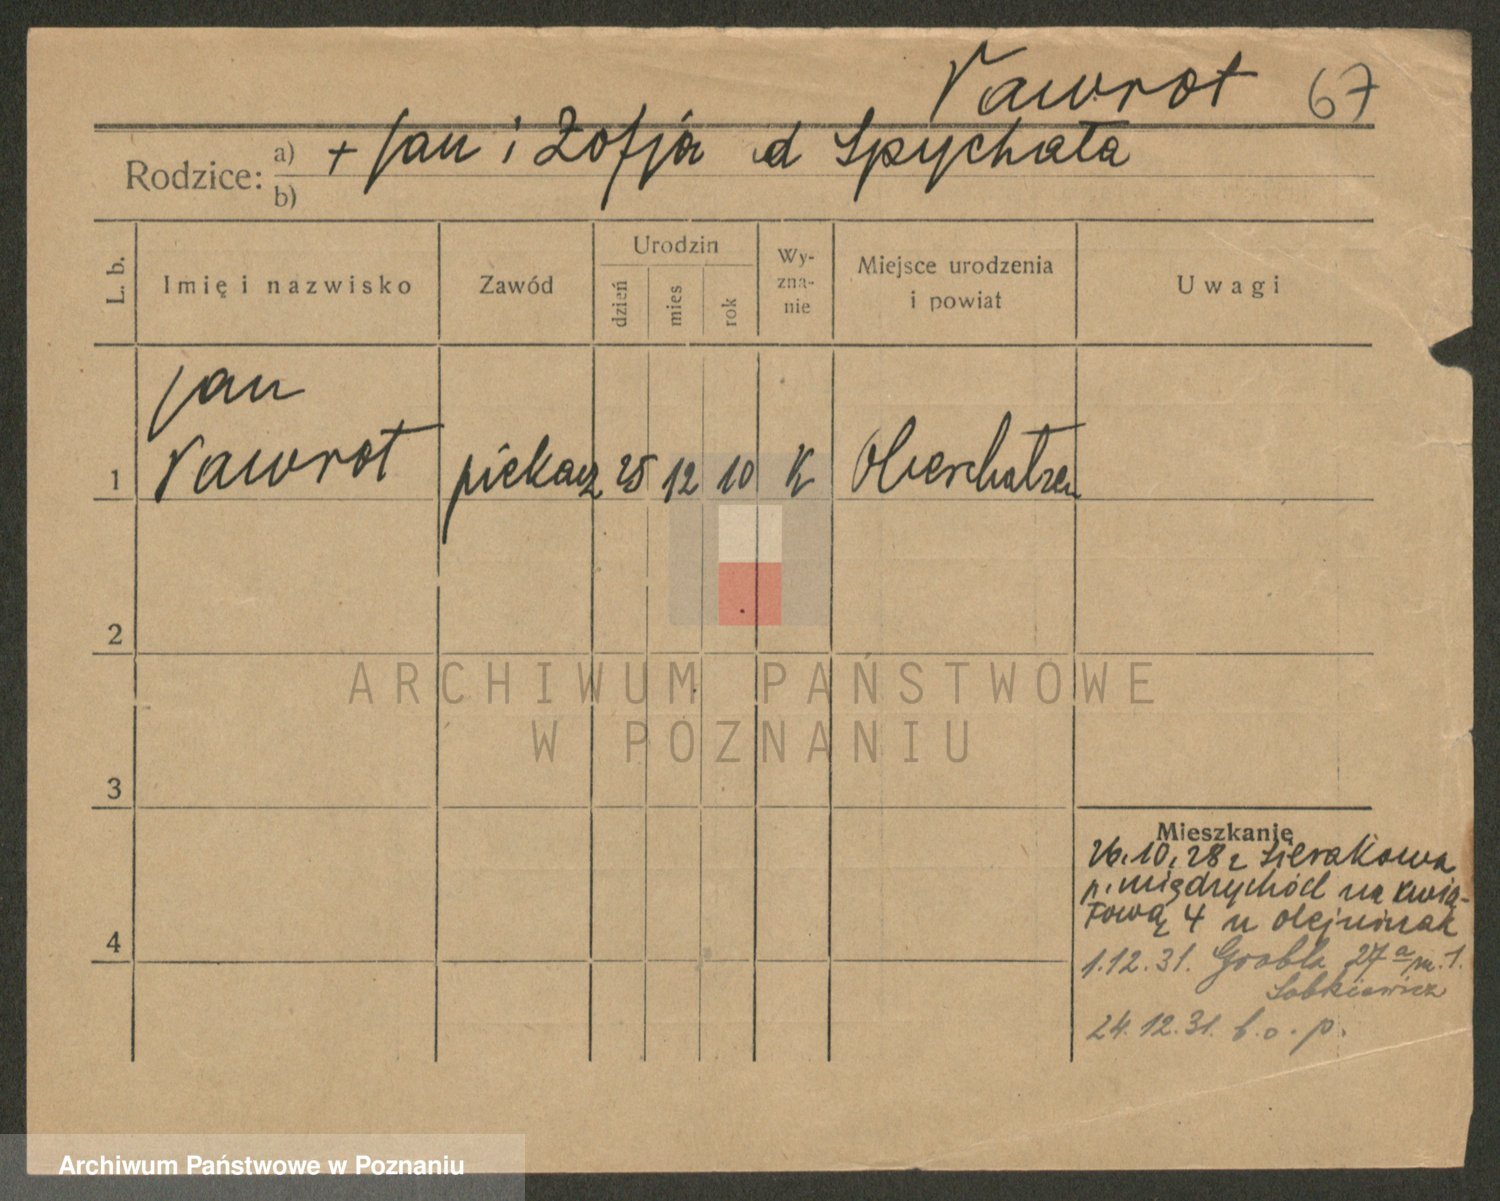 Nawrot 67
Rodzice: a) + Jan i Zofja d Spychała
b)
L. b.
Imię i nazwisko
Zawód
Urodzin
dzień
mies
rok
Wy-
zna-
nie
Miejsce urodzenia
i powiat
Uwagi
Jan
1 Nawrot piekarz 25 12 10 K
2
3
4
ARCHIWUM PAŃSTWOWE
W POZNANIU
Mieszkanie
26.10.28 z Sierakowa
p. międzychód na kwia-
tową 4 u Olejniczak
1.12.31. Grobla 27a m. 1.
Sobkiewicz
24.12.31. b.o.p.
Archiwum Państwowe w Poznaniu